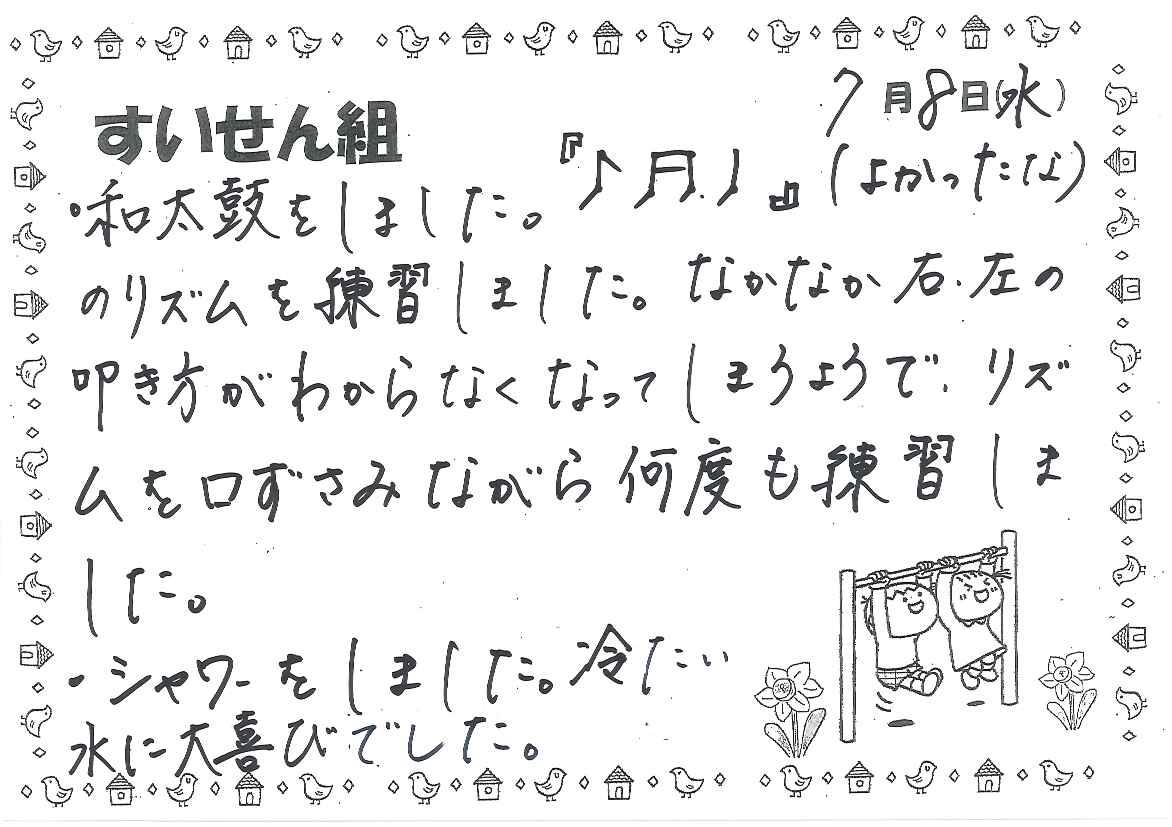 7月8日(水)
すいせん組
・和太鼓をしました。『♪♫.♩』(よかったな)
のリズムを練習しました。なかなか右、左の
叩き方がわからなくなってしまうようで、リズ
ムを口ずさみながら何度も練習しま
した。
・シャワーをしました。冷たい
水に大喜びでした。